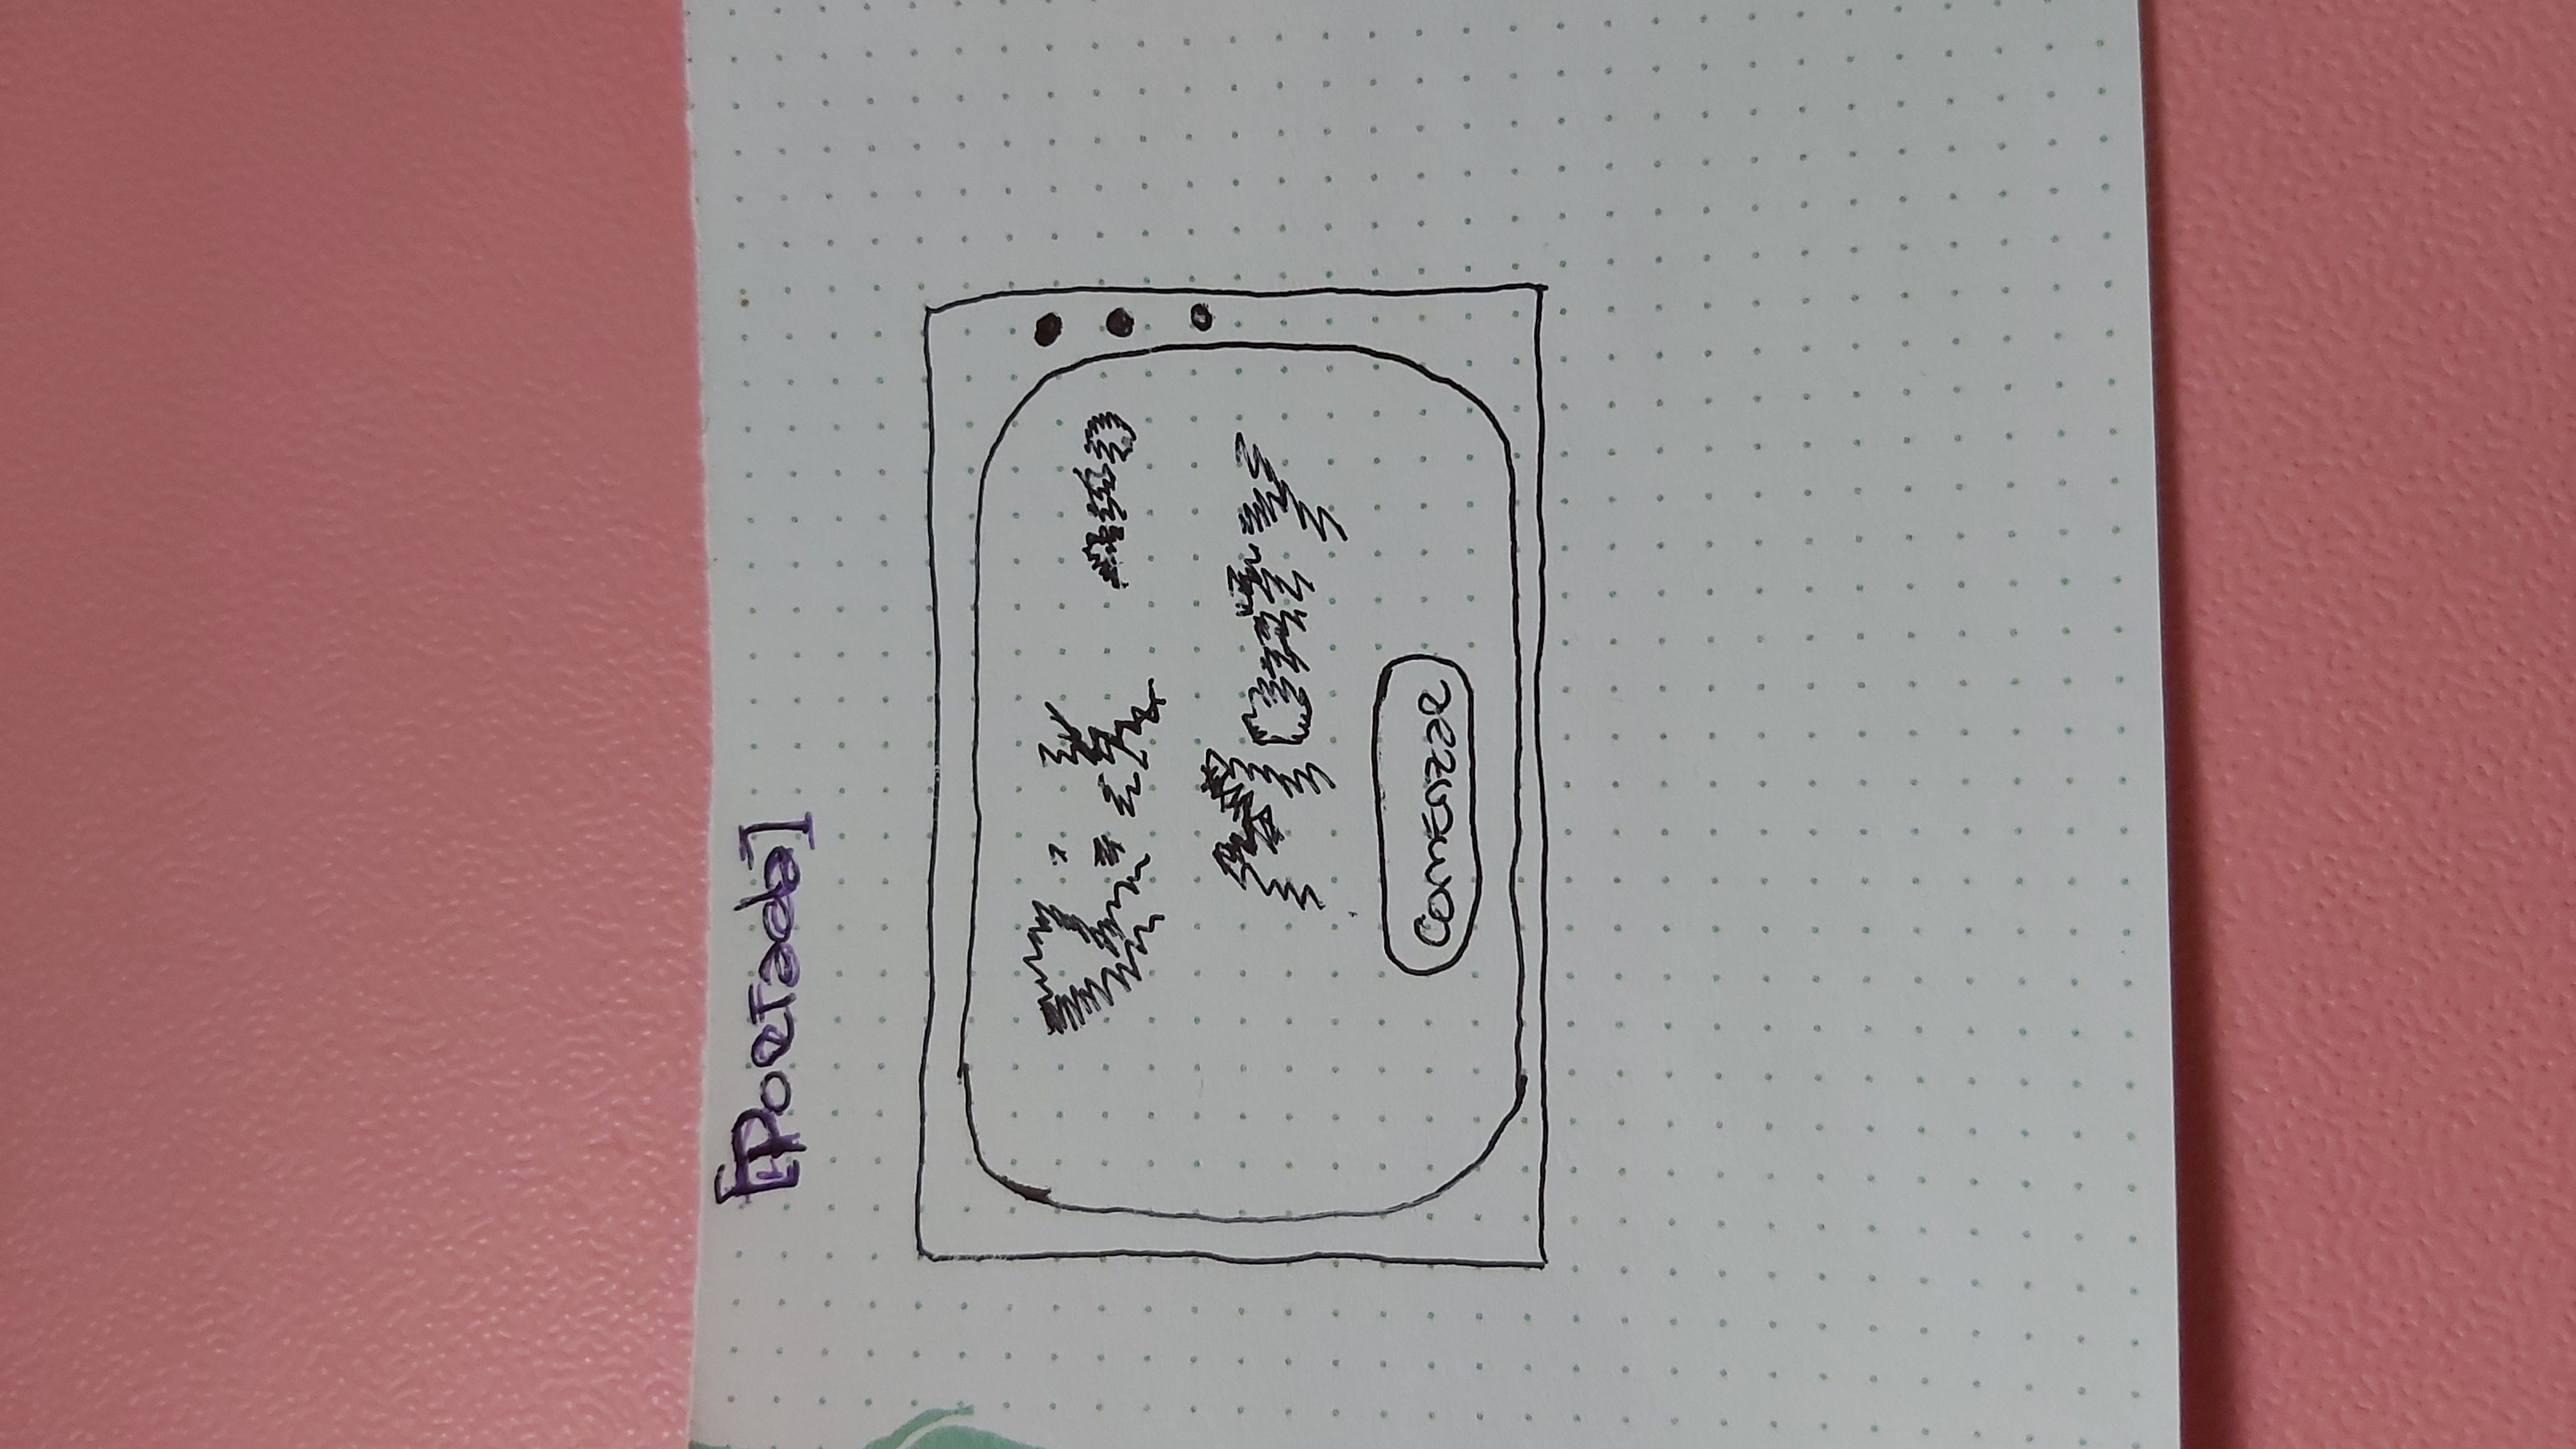 [Portada]
Rick and
Morty
Comenzar